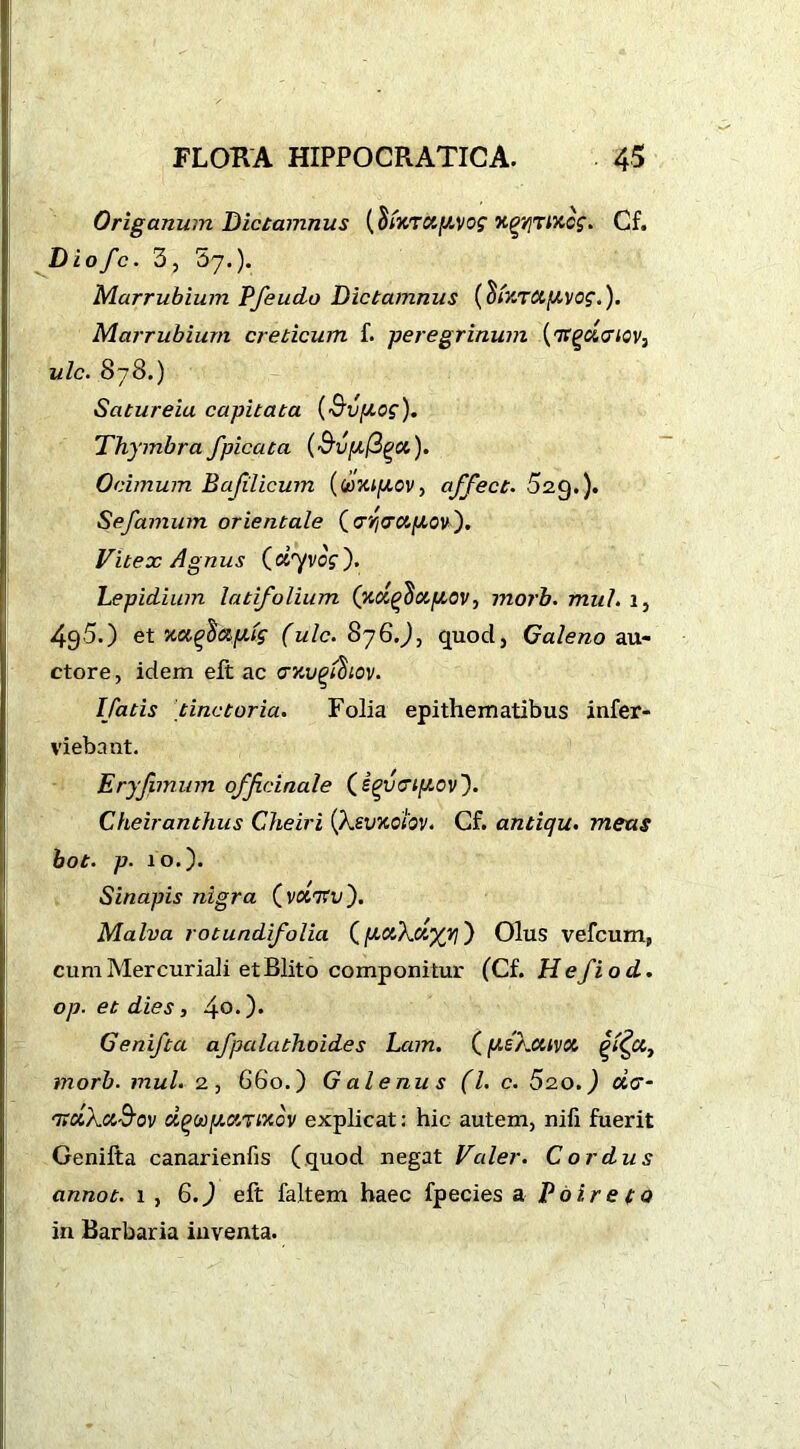 FLORA HIPPOCRATICA. 45
Origanum Dictamnus (δίκταμνος κρητικός. Cf.
Diofc. 3, 37.).
Marrubium Pfeudo Dictamnus (δίκταμνος.).
Marrubium creticum f. peregrinum (πράσιον,
ulc. 878.)
Satureia capitata (θύμος).
Thymbra fpicata (θύμβρα).
Ocimum Bafilicum (ὤκιμον, affect. 529.).
Sefamum orientale (σήσαμον).
Vitex Agnus (ἀγνός).
Lepidium latifolium (κάρδαμον, morb. mul. 1,
495.) et καρδαμίς (ulc. 876.), quod, Galeno au-
ctore, idem eft ac σκυρίδιον.
Ifatis tinctoria. Folia epithematibus infer-
viebant.
Eryfimum officinale (ἐρύσιμον).
Cheiranthus Cheiri (λευκοῖον. Cf. antiqu. meas
bot. p. 10.).
Sinapis nigra (νάπυ).
Malva rotundifolia (μαλάχη) Olus vefcum,
cum Mercuriali et Blito componitur (Cf. Hefiod.
op. et dies, 40.).
Genifta afpalathoides Lam. (μέλαινα ρίζα,
morb. mul. 2, 660.) Galenus (l. c. 520.) ἀσ-
πάλαθον ἀρωματικὸν explicat: hic autem, nifi fuerit
Genifta canarienfis (quod negat Valer. Cordus
annot. 1, 6.) eft faltem haec fpecies a Poireto
in Barbaria inventa.